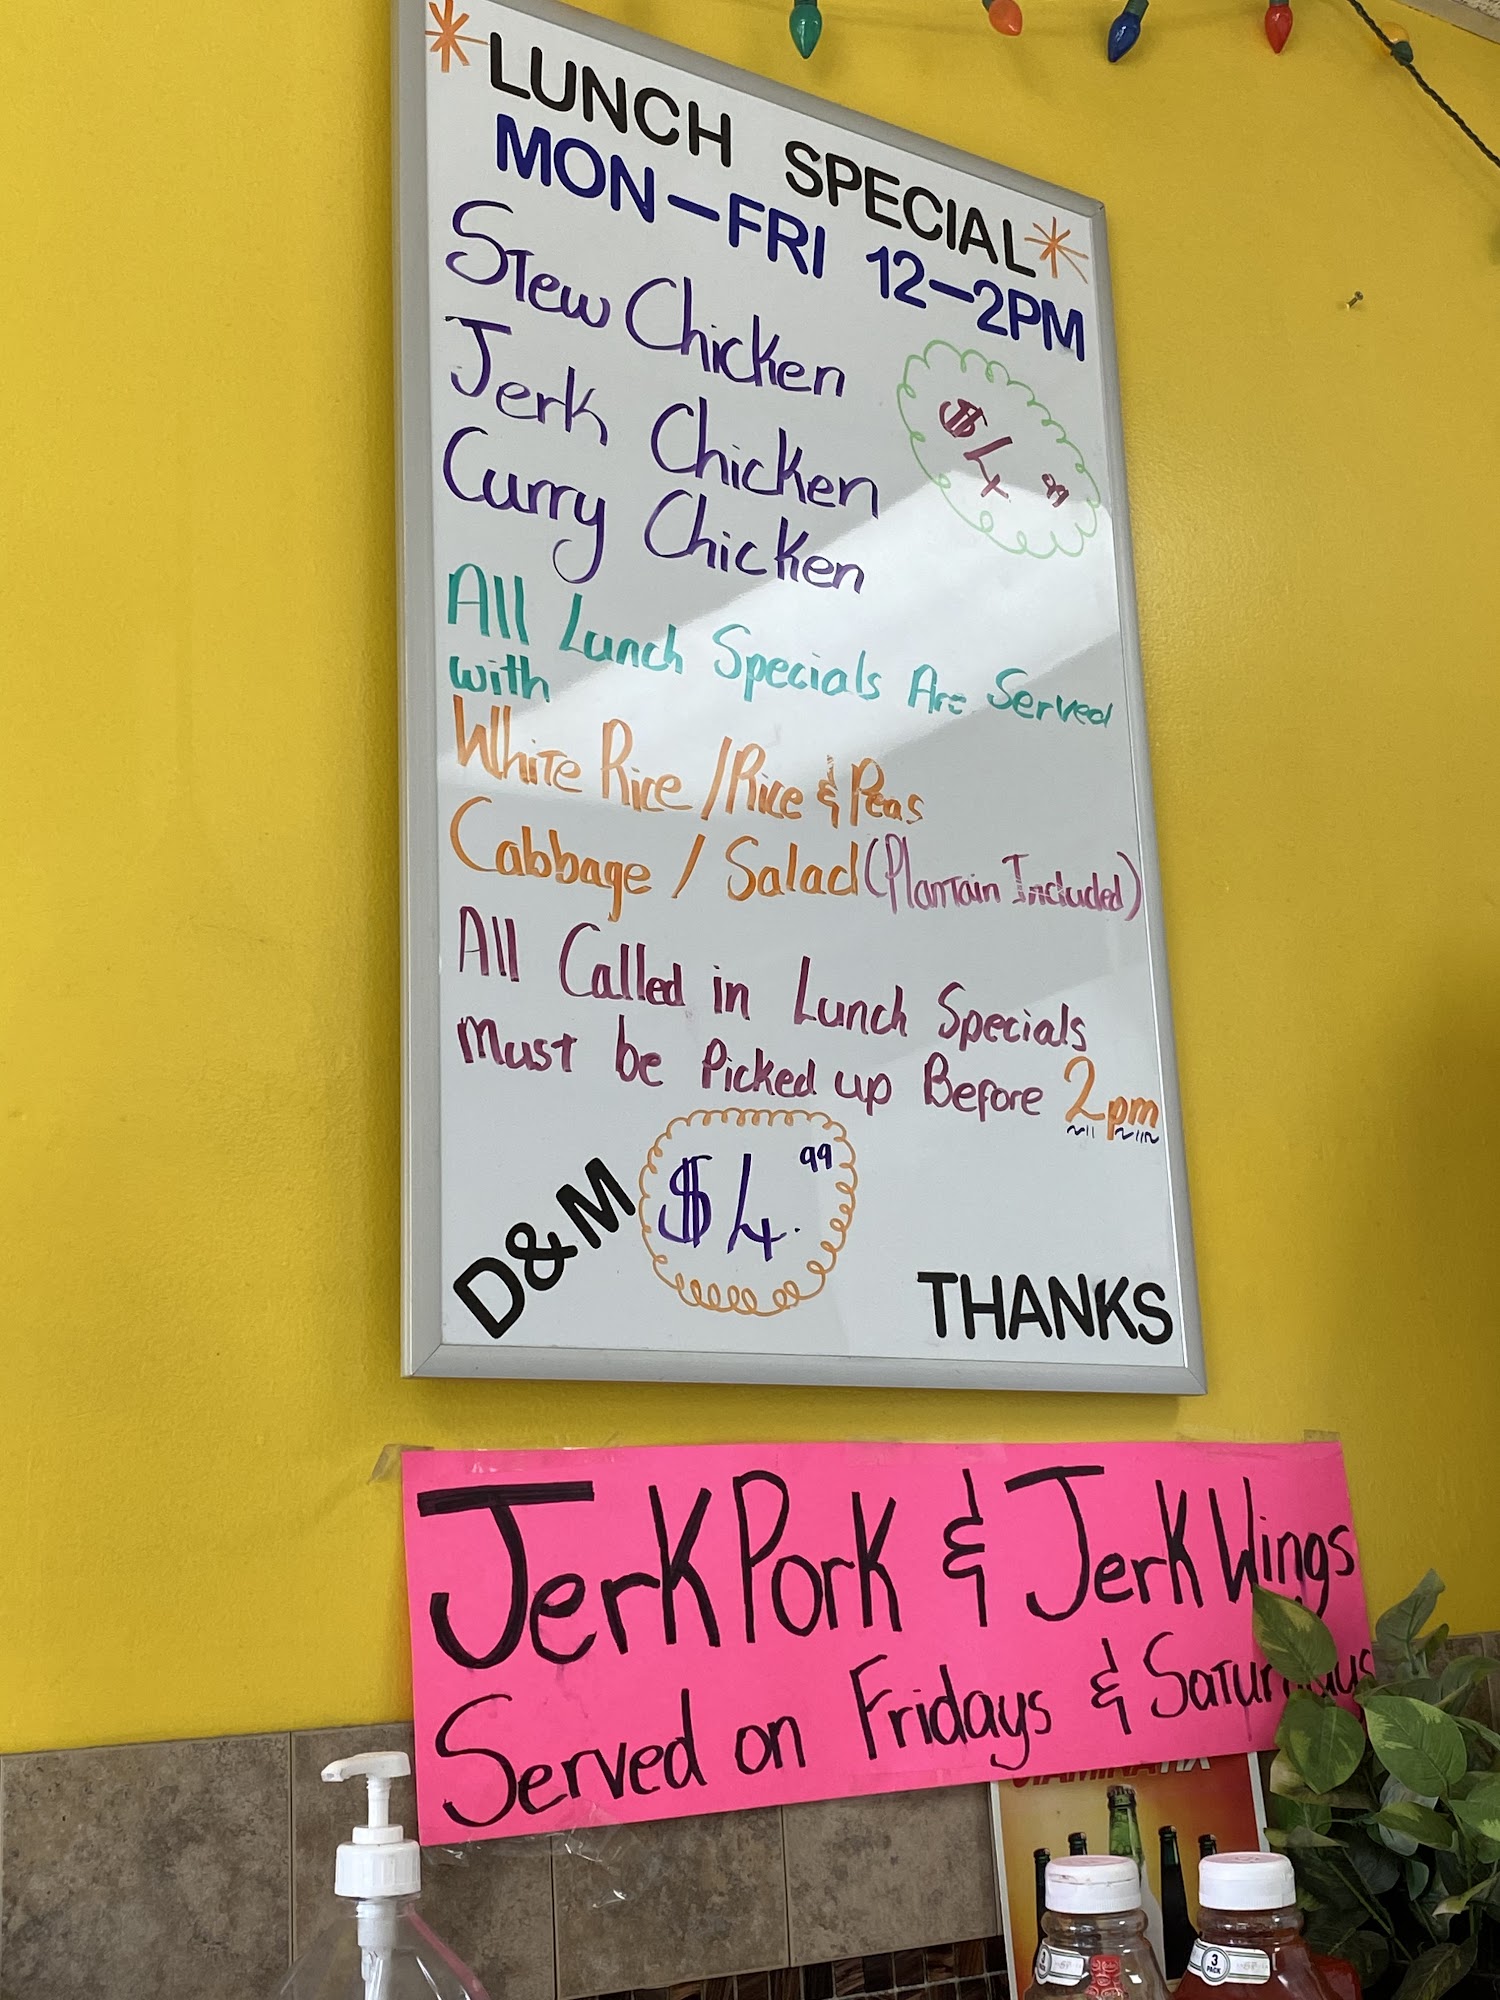 *LUNCH SPECIAL*
MON-FRI 12-2PM
Stew Chicken
Jerk Chicken
Curry Chicken
$4 99
All Lunch Specials Are Served
with
White Rice / Rice & Peas
Cabbage / Salad (Plantain Included)
All Called in Lunch Specials
Must be Picked up Before 2pm
D&M
$4.99
THANKS
Jerk Pork & Jerk Wings
Served on Fridays & Saturdays
3 PACK